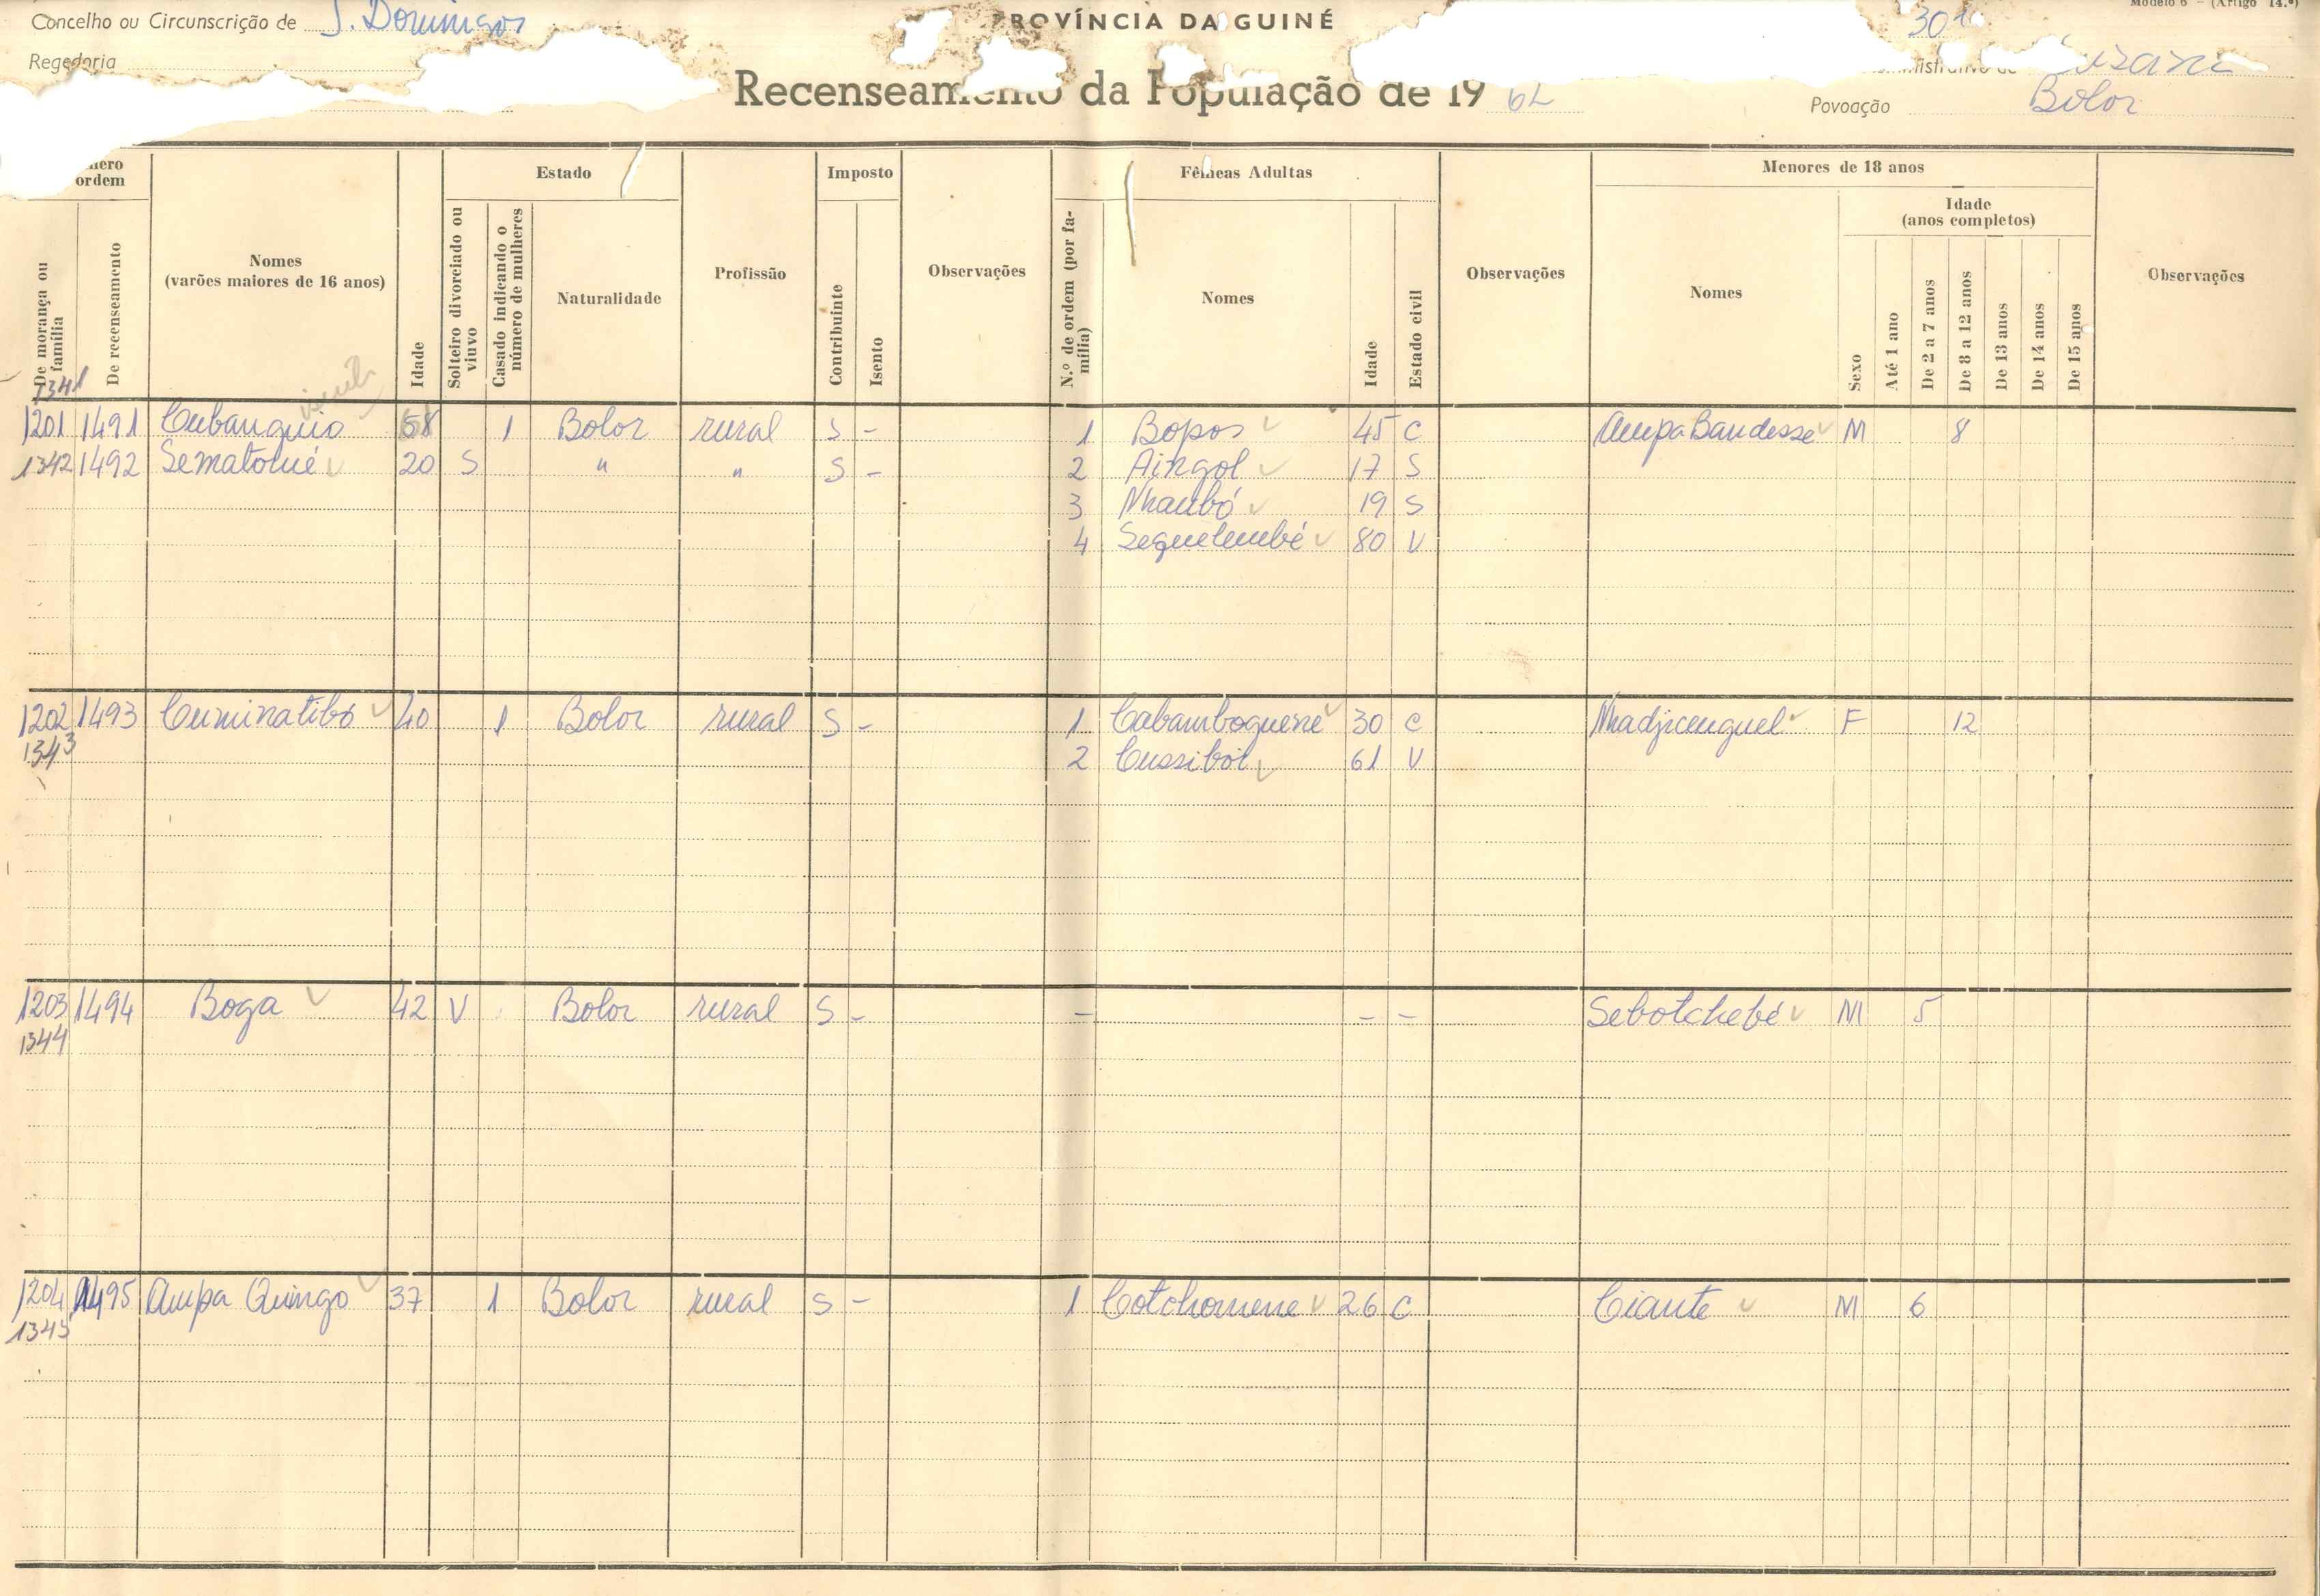 Modelo 6 - (Artigo 14.º)
Concelho ou Circunscrição de S. Domingos PROVÍNCIA DA GUINÉ 301
Regedoria
Recenseamento da População de 19 62
Povoação Bolor
ordem Estado Imposto Fêmeas Adultas Menores de 18 anos
De morança ou família De recenseamento Nomes (varões maiores de 16 anos) Idade Solteiro divorciado ou viuvo Casado indicando o número de mulheres Naturalidade Profissão Contribuinte Isento Observações N.º de ordem (por família) Nomes Idade Estado civil Observações Nomes Sexo Idade (anos completos) Até 1 ano De 2 a 7 anos De 8 a 12 anos De 13 anos De 14 anos De 15 anos Observações
1341
1201 1491 Cubanguio 58 1 Bolor rural S - 1 Bopos 45 C Ampa Bandesse M 8
1342 1492 Sematolué 20 S " " S - 2 Aingol 17 S
3 Nhambó 19 S
4 Sequelembé 80 V
1202 1493 Cuminatibó 40 1 Bolor rural S - 1 Cabamboquene 30 C Nhadjicunguel F 12
1343 2 Cussiból 61 V
1203 1494 Boga 42 V Bolor rural S - - - - Sebotchebé M 5
1344
1204 1495 Ampa Quingo 37 1 Bolor rural S - 1 Cotchomene 26 C Ciante M 6
1345